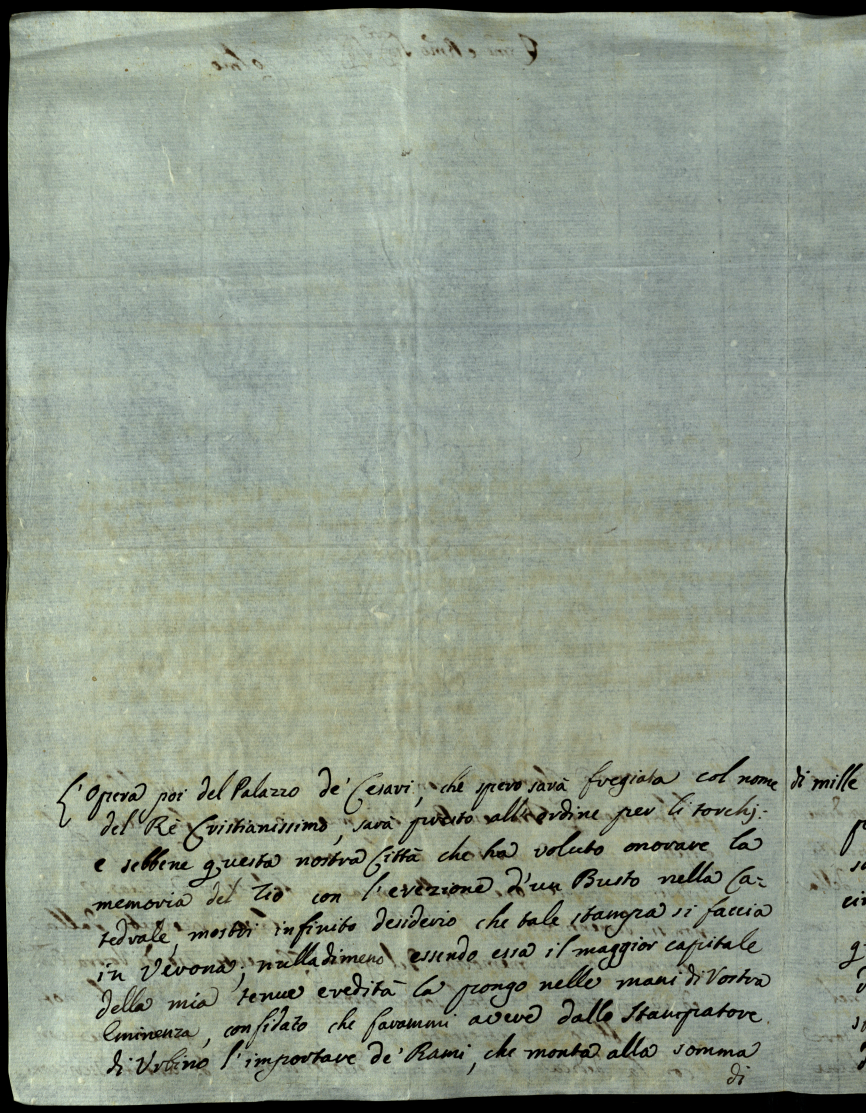 L'Opera poi del Palazzo de' Cesari, che spero sarà fregiata col nome
del Rè Cristianissimo, sarà presto all'ordine per li torchj:
e sebbene questa nostra Città che ha voluto onorare la
memoria del Zio con l'erezione d'un Busto nella Ca=
tedrale, mostri infinito desiderio che tale stampa si faccia
in Verona, nulladimeno essendo essa il maggior capitale
della mia tenue eredità la pongo nelle mani di Vostra
Eminenza, confidato che farammi avere dallo Stampatore
di Urbino l'importare de' Rami, che monta alla somma
di
di mille